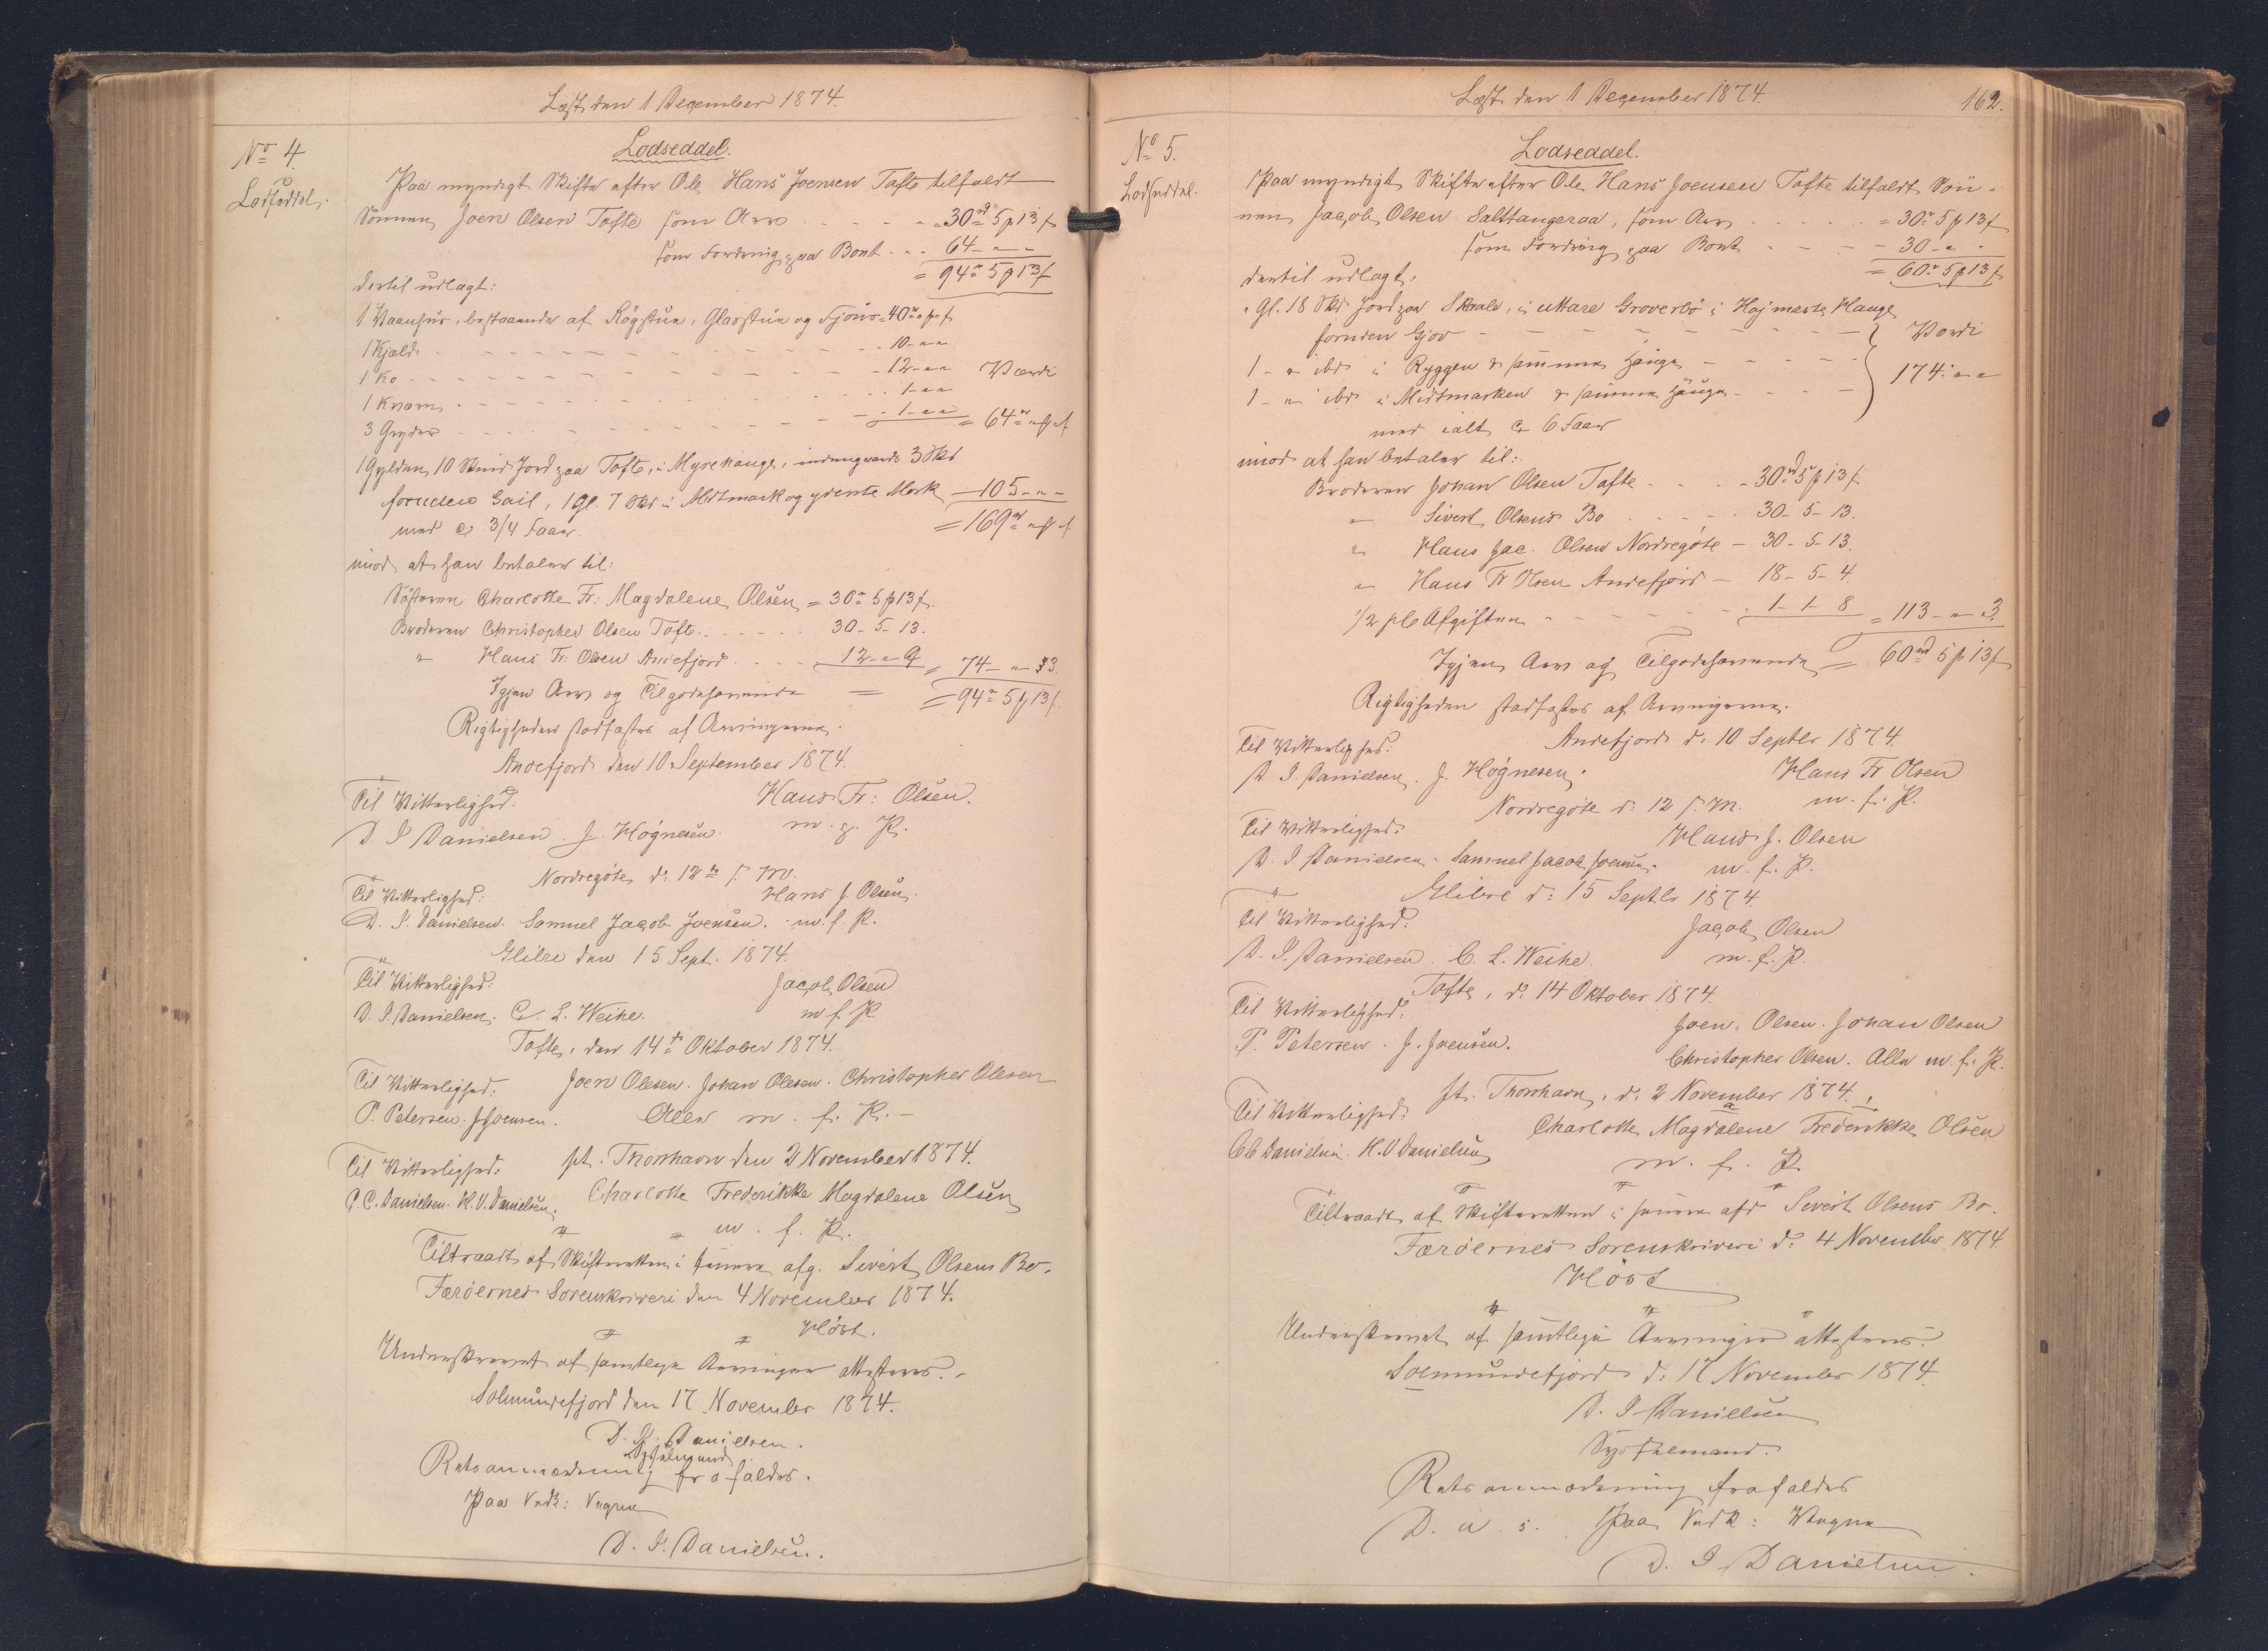 Læst den 1 December 1874.
No 4.
Lodseddel.
Lodseddel.
Paa myndigt Skifte efter Ole Hans Joensen Tofte tilfaldt
Sönnen Joen Olsen Tofte som Arv - - - = 30rd 5 p 13 f
som Fordring paa Boet . . - 64 - " -
= 94rd 5 p 13 f
dertil udlagt:
1 Vaanhus, bestaaende af Rögstue, Glasstue og Fjöus = 40rd " p " f
1 Kjeld - - - 10 - " "
1 Ko - - - 12 - " " Værdi
1 Kværn - - - 1 - " "
3 Gryder - - - 1 - " " = 64rd " p " f
1 Gylden 10 Skind Jord paa Tofte, i Myrehauge, 3 Skd
foruden Gail, 1 Gl. 7 Skd i Midtmark og yderste Mark - 105 - " -
med ca 3/4 Faar. = 169rd " p " f
imod at han betaler til:
Sösteren Charlotte Fr: Magdalene Olsen = 30rd 5 p 13 f.
Broderen Christopher Olsen Tofte - - - 30 - 5 - 13.
" Hans Fr: Olsen Andefjord - - - 12 - " 9 = 74 - " - 3.
Igjen Arv og Tilgodehavende = = 94rd 5 p 13 f.
Rigtigheden stadfæstes af Arvingerne.
Andefjord den 10 September 1874.
Til Vitterlighed: Hans Fr: Olsen.
D I Danielsen. J. Högnesen. m. f. P.
Nordregöte d. 12te s. M.
Til Vitterlighed: Hans J. Olsen.
D. I. Danielsen. Samuel Jacob Joensen. m. f. P.
Glibre den 15 Sept. 1874.
Til Vitterlighed: Jacob Olsen
D. I. Danielsen. C. L. Weihe. m f. P.
Tofte, den 14de Oktober 1874.
Til Vitterlighed: Joen Olesen. Johan Olesen. Christopher Olesen
P. Petersen. J Joensen. Alle m. f. P. -
Til Vitterlighed: pt. Thorshavn den 2 November 1874.
C. C. Danielsen. H. V. Danielsen. Charlotte Frederikke Magdalene Olsen
m. f. P.
Tiltraadt af Skifteretten i samme afg. Sivert Olsens Bo.
Færöernes Sorenskriveri den 4 November 1874.
Höst.
Underskrevet af samtlige Arvinger attesteres. -
Solmundefjord den 17 November 1874.
D. I. Danielsen.
Sysselmand
Retsanmærkning frafaldes.
Paa Vedk: Vegne
D. I. Danielsen.
Læst den 1 December 1874.
162.
No 5.
Lodseddel.
Lodseddel.
Paa myndigt Skifte efter Ole Hans Joensen Tofte tilfaldt Sön-
nen Jacob Olsen Salttangeraa, som Arv - - - = 30rd 5 p 13 f
som Fordring paa Boet - - - 30 - " -
= 60rd 5 p 13 f
dertil udlagt:
" Gl. 18 Skd Jord paa Skaale, i uttare Groverbö i Hauge
foruden Gjov - - - Værdi
1 - " ibd i Ryggen & samme Hauge - - - 174 : " "
1 - " ibd i Midtmarken & samme Hauge - - -
med ialt ca 6 Faar
imod at han betaler til:
Broderen Johan Olsen Tofte - - 30rd 5 p 13 f
" Sivert Olsens Bo - - - 30 - 5 - 13.
" Hans Jac. Olsen Nordregöte - 30 - 5 - 13.
" Hans Fr Olsen Andefjord - 18 - 5 - 4.
1/2 pCt Afgiften - - - 1 - 1 - 8 = 113 - " - 3
Igjen Arv og Tilgodehavende = 60rd 5 p 13 f
Rigtigheden stadfæstes af Arvingerne.
Andefjord d. 10 Septbr 1874.
Til Vitterlighed: Hans Fr Olsen
D I. Danielsen. J. Högnesen. m. f. P.
Nordregöte d. 12 s. M.
Til Vitterlighed: Hans J. Olsen
D. I Danielsen. Samuel Jacob Joensen. m. f. P.
Glibre d: 15 Septbr 1874.
Til Vitterlighed: Jacob Olsen
D. I. Danielsen. C. L. Weihe. m. f. P.
Tofte, d. 14 Oktober 1874.
Til Vitterlighed: Joen. Olsen. Johan Olsen
P. Petersen. J. Joensen. Christopher Olsen. Alle m. f. P.
pt. Thorshavn, d. 2 November 1874.
Til Vitterlighed: Charlotte Magdalene Frederikke Olsen
C C Danielsen. H. V Danielsen m. f. P.
Tiltraadt af Skifteretten i samme afd Sivert Olsens Bo.
Færöernes Sorenskriveri d. 4 November 1874
Höst
Underskrevet af samtlige Arvinger attesteres.
Solmundefjord d. 17 November 1874.
D. I Danielsen
Sysselmand.
Retsanmærkning frafaldes
D. u s. Paa Vedk: Vegne
D. I Danielsen.